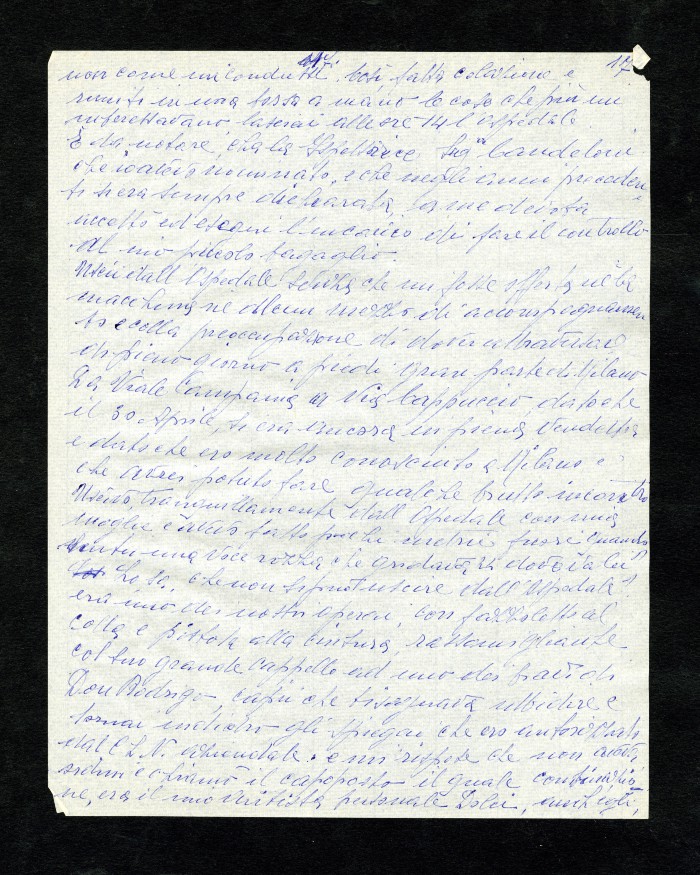 17
non come mi condussi. Così fatta colazione e
riuniti in una borsa a mano le cose che più mi
interessavano lasciai alle ore 14 l'Ospedale.
È da notare, che la Ispettrice Sig.ra Candeloni
che ho nominato, e che negli anni preceden=
ti si era sempre dichiarata, a me devota
accettò ed eseguì l'incarico di fare il controllo
al mio piccolo bagaglio.
Uscii dall'Ospedale senza che mi fosse offerta nè la
macchina nè alcun mezzo di accompagnamen
to e colla preoccupazione di dover attraversare
di pieno giorno a piedi gran parte di Milano
Da Viale Campania a Via Cappuccio, dato che
il 30 Aprile, si era ancora in piena vendetta
e dato che ero molto conosciuto a Milano e
che avrei potuto fare qualche brutto incontro
Uscito tranquillamente dall'Ospedale con mia
moglie e avevo fatto pochi metri fuori quando
sentii una voce rozza che gridava dove va lei
lo sa, che non si può uscire dall'Ospedale?
era uno dei nostri operai, con fazzoletto al
collo e pistola alla cintura, rassomigliante
col suo grande cappello ad uno dei bravi di
Don Rodrigo, capii che bisognava ubbidire e
tornai indietro gli spiegai che ero autorizzato
dal C.L.N. aziendale. e mi rispose che non
e chiamò il capoposto il quale combinazio=
ne, era il mio autista personale Dolci, anch'egli,